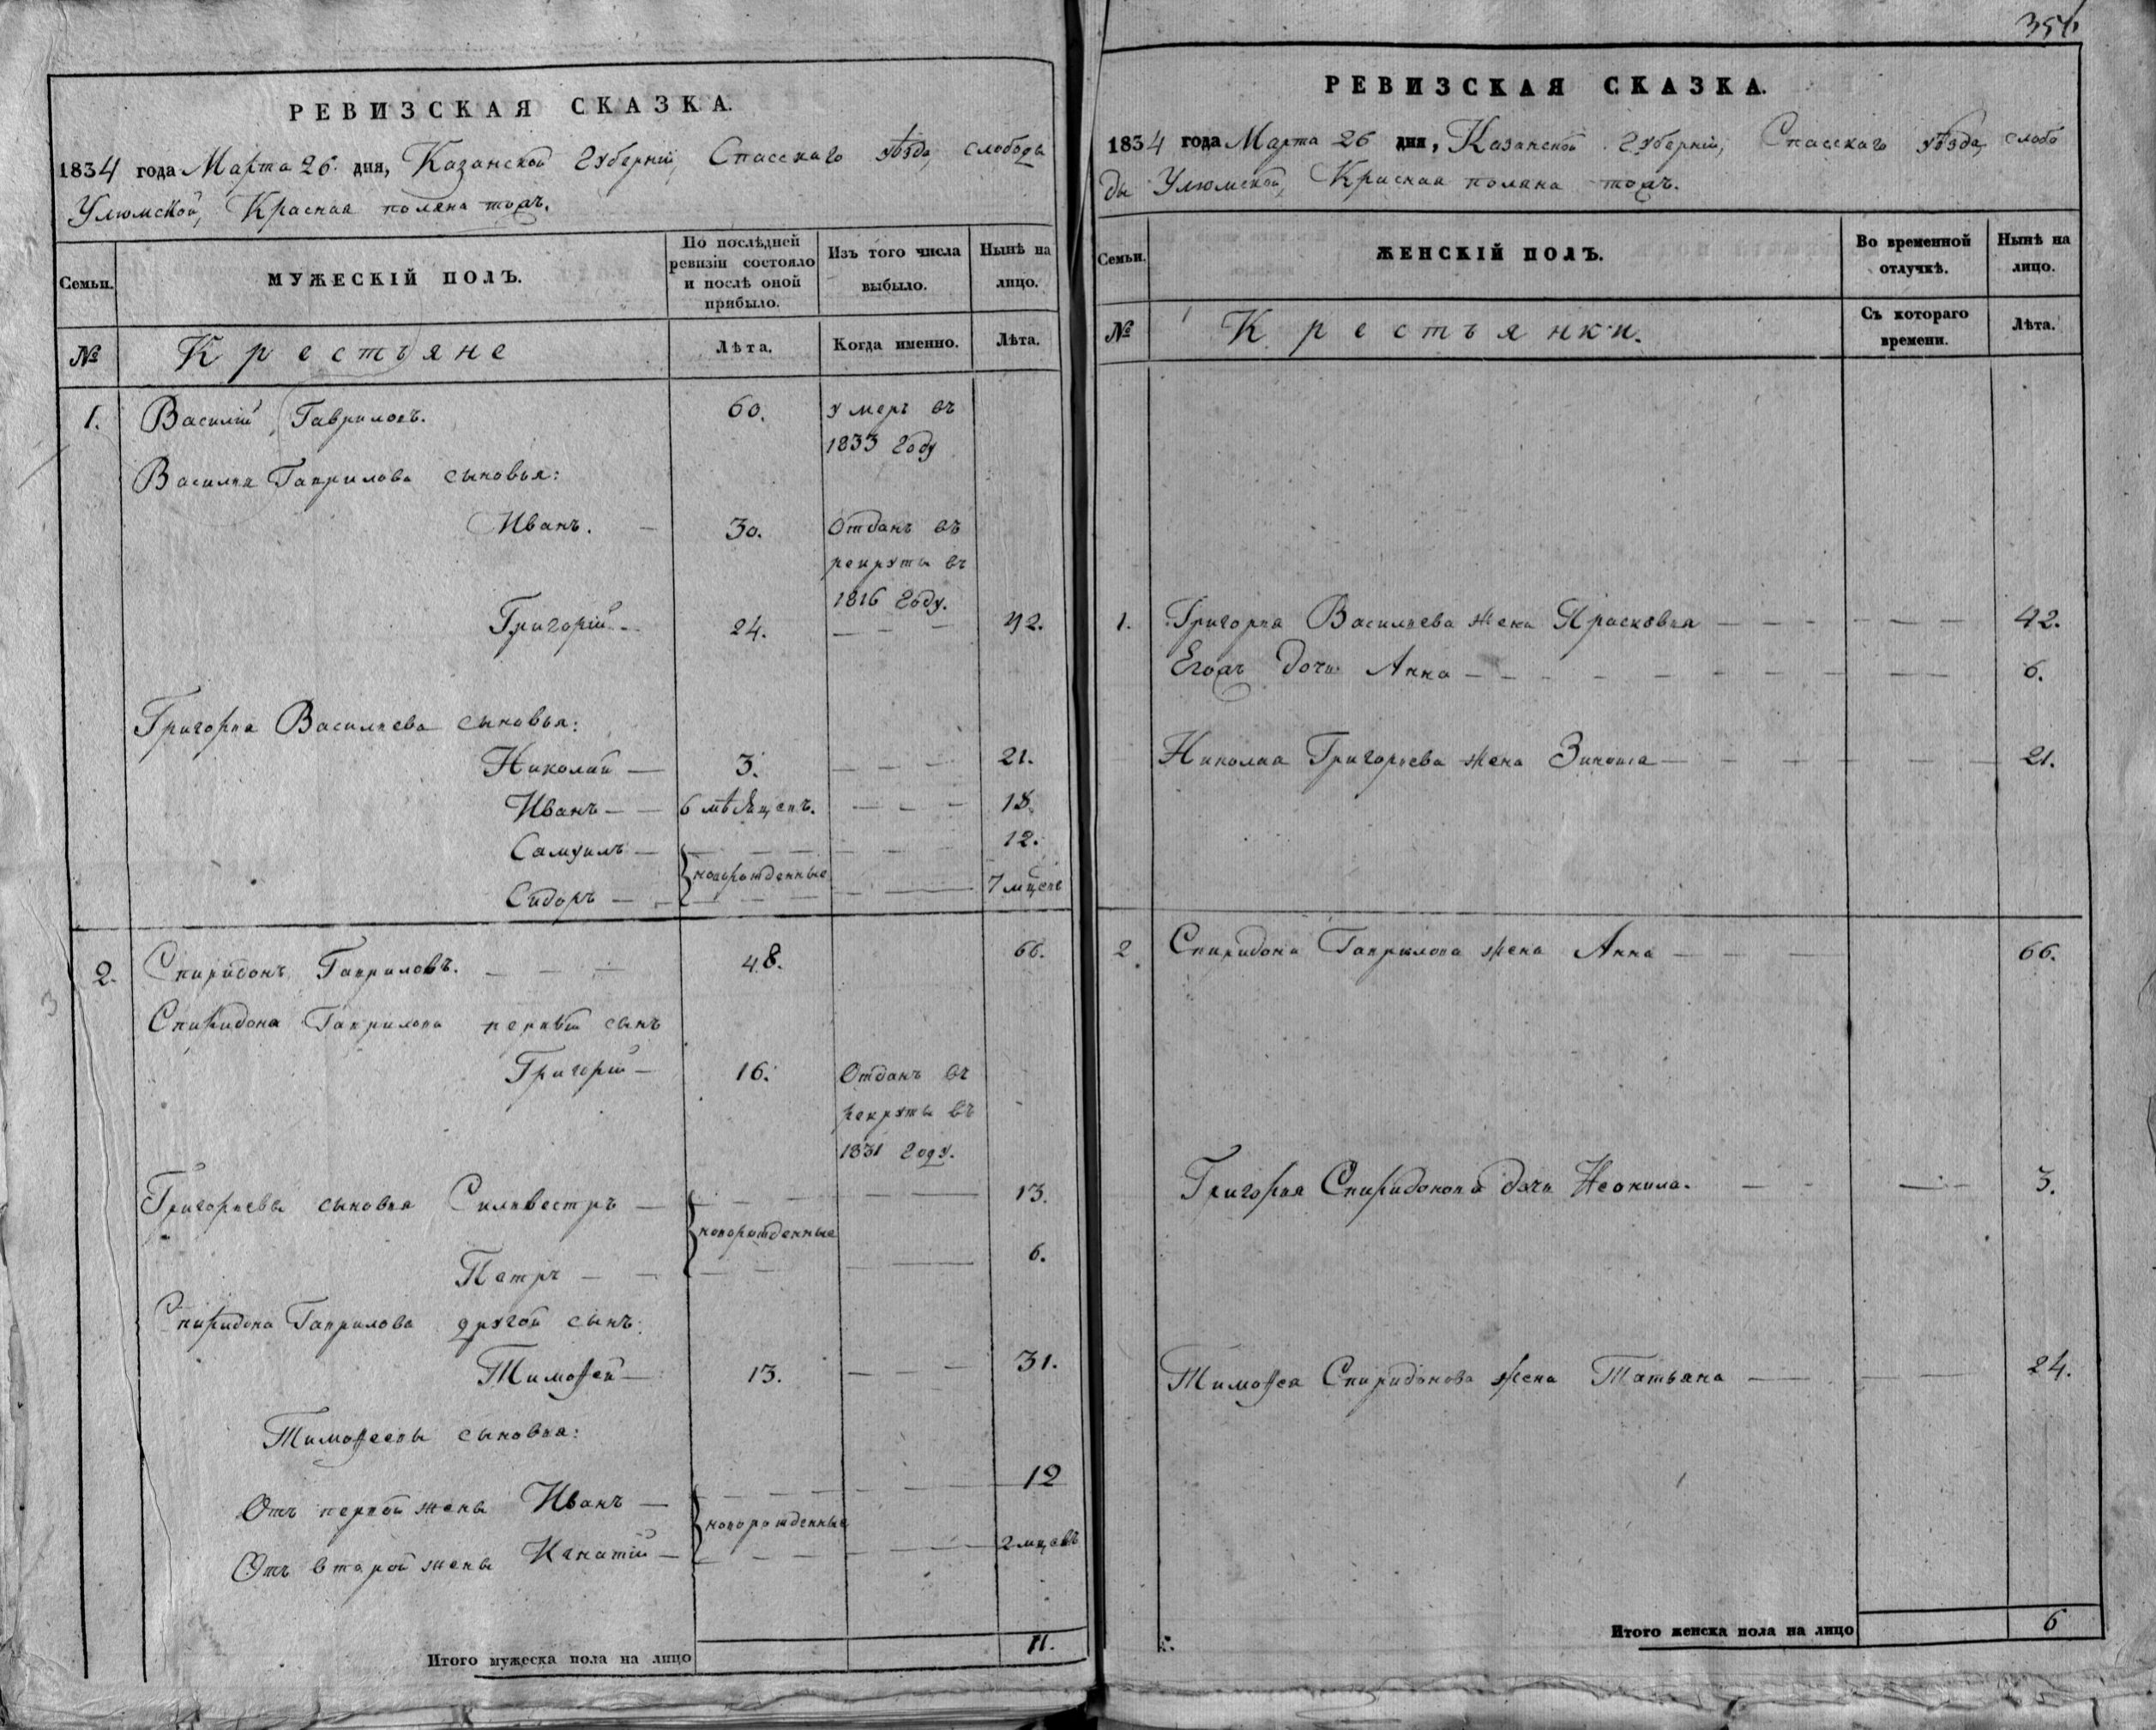 РЕВИЗСКАЯ СКАЗКА.
1834 года Марта 26 дня, Казанской губернiи, Спасскаго уѣзда, слободы
Улюмской, Красная поляна тожъ.
Семьи.
МУЖЕСКІЙ ПОЛЪ.
По послѣдней ревизіи состояло и послѣ оной прибыло.
Изъ того числа выбыло.
Нынѣ на лицо.
№
Крестъяне
Лѣта.
Когда именно.
Лѣта.
1. Василій Гавриловъ. 60. умеръ въ
1833 году
Василья Гаврилова сыновья:
Иванъ. — 30. Отданъ въ
рекруты въ
1816 году.
Григорій — 24. — — — 42.
Григорья Васильева сыновья:
Николай — 3. — — — 21.
Иванъ — — 6 мѣсяцевъ. — — — 18.
Самуилъ — — — — 12.
новорожденные
Сидоръ — — — — 7 мцевъ
2. Спиридонъ Гавриловъ. — — — 48. 66.
Спиридона Гаврилова первый сынъ
Григорій — 16. Отданъ въ
рекруты въ
1831 году.
Григорьевы сыновья Сильвестръ — — — — 13.
новорожденные
Петръ — — — — — 6.
Спиридона Гаврилова другой сынъ:
Тимофей — 13. — — — 31.
Тимофеевы сыновья:
Отъ первой жены Иванъ — — — — 12
новорожденные
Отъ второй жены Игнатій — — — — 2 мцевъ
Итого мужеска пола на лицо 11.
354
РЕВИЗСКАЯ СКАЗКА.
1834 года Марта 26 дня, Казанской губернiи, Спасскаго уѣзда, слобо
ды Улюмской, Красная поляна тожъ.
Семьи.
ЖЕНСКІЙ ПОЛЪ.
Во временной отлучкѣ.
Нынѣ на лицо.
№
Крестъянки.
Съ котораго времени.
Лѣта.
1. Григорья Васильева жена Прасковья — — — 42.
Егожъ дочь Анна — — — 6.
Николая Григорьева жена — — — 21.
2. Спиридона Гаврилова жена Анна — — — 66.
Григорья Спиридонова дочь Неонила. — — — 3.
Тимофея Спиридонова жена Татьяна — — — 24.
Итого женска пола на лицо 6